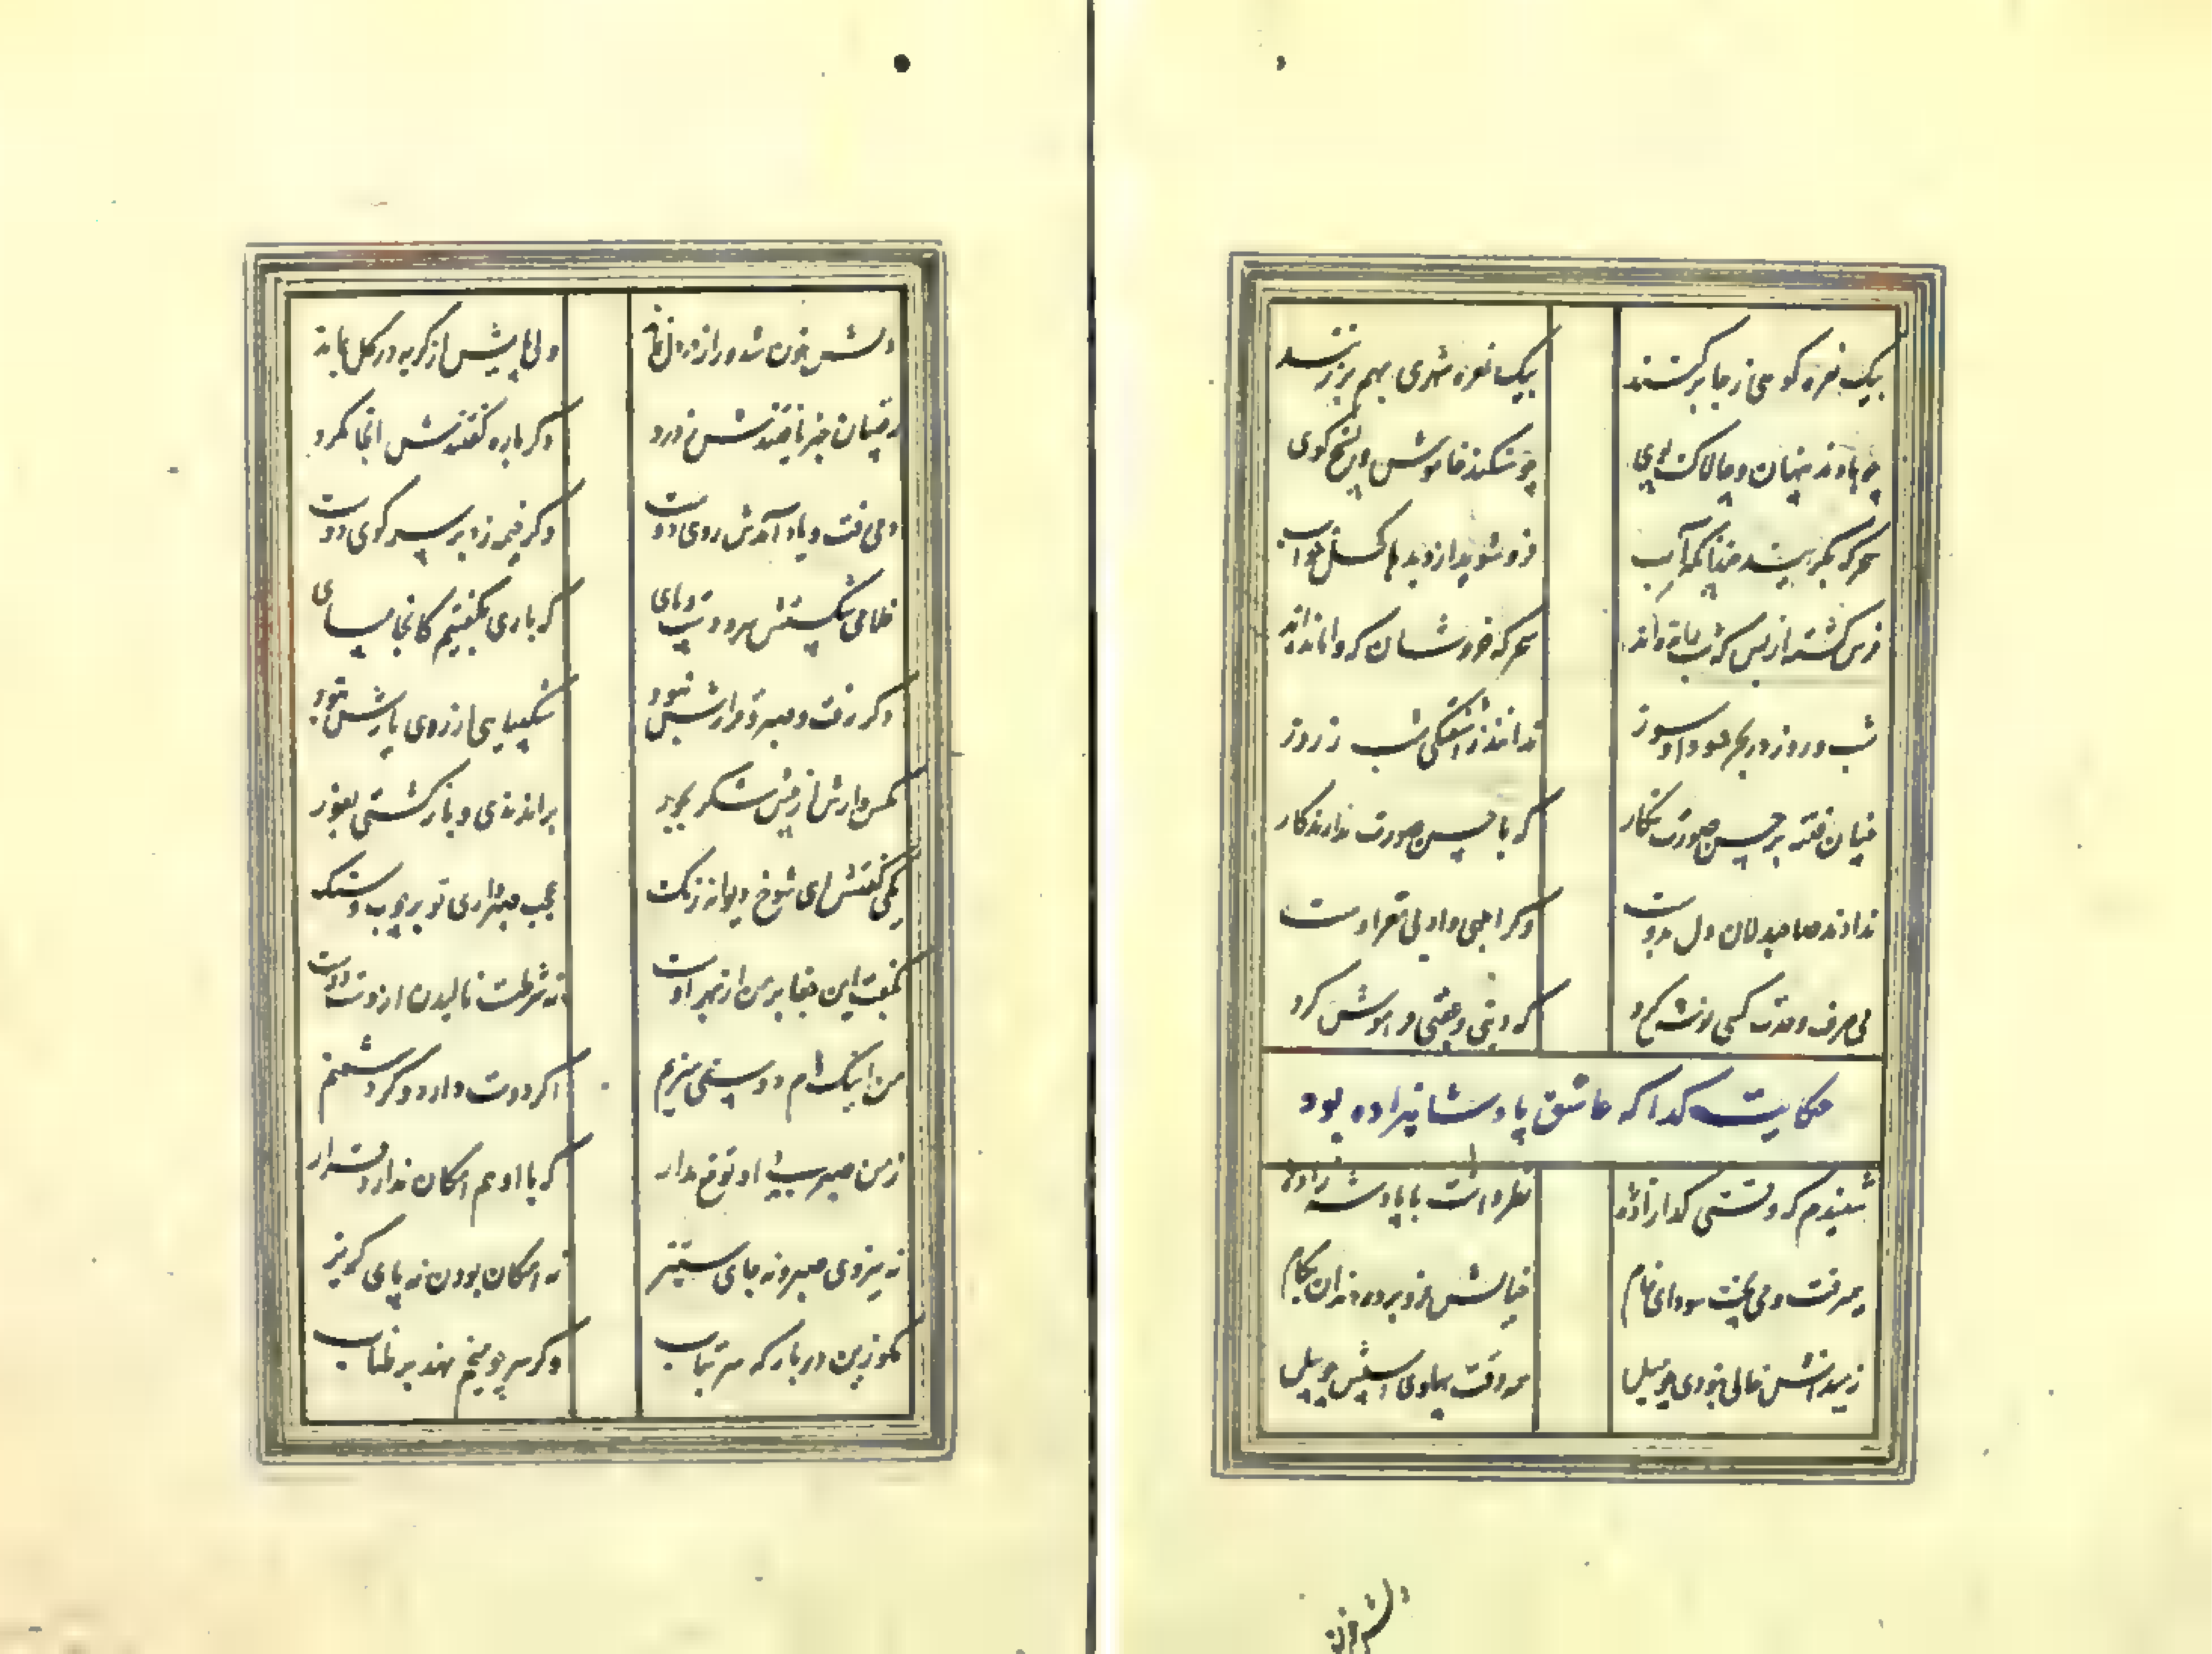 بیک نعره کوهی ز جا برکنند بیک نعره شهری بهم برزنند
چو بادند پنهان و چالاک پوی چو سنکند خاموش و تسبیح کوی
سحرکه بکریند چندانکه آب فرو شوید از دیدها کحل خواب
فرس کشته از بس که شب رانده‌اند سحرکه خروشان که وامانده‌اند
شب و روز در بحر سودا و سوز ندانند ز آشفتکی شب ز روز
چنان فتنه بر حسن صورت نکار که با حسن صورت ندارند کار
ندادند صاحبدلان دل بپوست وکر ابلهی داد بی مغز اوست
می صرف وحدت کسی نوش کرد که دنیی و عقبی فراموش کرد
حکایت کدا که عاشق پادشاهزاده بود
شنیدم که وقتی کدازاده نظر داشت با پادشه‌زاده
همیرفت و می‌پخت سودای خام خیالش فرو برده دندان بکام
ز میدانش خالی نبودی چو میل همه وقت پهلوی اسپش چو پیل
دلش خون
دلش خون شد و راز در دل بماند ولی پایش از کریه در کل بماند
رقیبان خبر یافتندش ز درد دکر باره کفتندش اینجا مکرد
دمی رفت و یاد آمدش روی دوست دکر خیمه زد بر سر کوی دوست
غلامی شکستش سر و دست و پای که باری نکفتیم کاینجا مپای
دکر رفت و صبر و قرارش نبود شکیبایی از روی یارش نبود
مکس وارش از پیش شکر بجور براندندی و بازکشتی بفور
یکی کفتش ای شوخ دیوانه رنک عجب صبر داری تو بر چوب و سنک
بکفت این جفا بر من از بهر اوست نه شرطست نالیدن از دست دوست
من اینک دم دوستی میزنم اکر دوست دارد وکر دشمنم
ز من صبر بی او توقع مدار که با او هم امکان ندارد قرار
نه نیروی صبر و نه جای ستیز نه امکان بودن نه پای کریز
مکو زین در بارکه سر بتاب وکر سر چو میخم نهد بر طناب